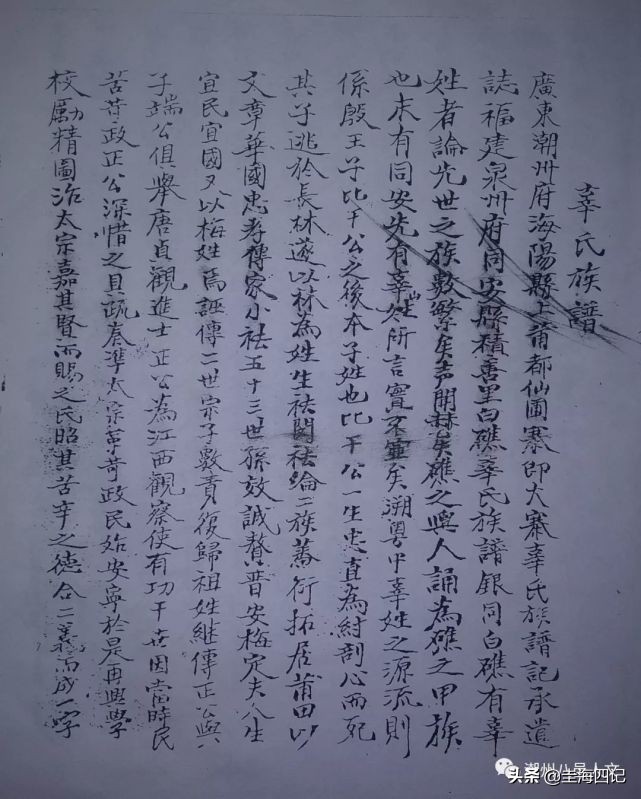 辜氏族譜
廣東潮州府海陽縣上莆都仙圃寨即大寨辜氏族譜記承遺
誌福建泉州府同安縣積善里白礁辜氏族譜銀同白礁有辜
姓者論先世之族數繁矣声聞赫矣礁之與人誦為礁之甲族
也未有同安先有辜姓所言實不虛矣溯粤中辜姓之源流則
係殷王子比干公之後本子姓也比干公一生忠直為紂剖心而死
其子逃於長林遂以林為姓生袪閱袪綸二族蕃衍拓居莆田以
文章華國忠孝傳家小袪五十三世孫效誠贅晋安梅定夫公生
宜民宜國又以梅姓為誣傳二世宗子數責復歸祖姓継傳正公與
子端公俱舉唐貞觀進士正公為江西觀察使有功于世因當時民
苦苛政正公深惜之具疏奏準太宗革苛政民始安寧於是再興學
校勵精圖治太宗嘉其賢而賜之氏昭其苦辛之德合二義而成一字
潮州八邑人文
头条@圭海四记